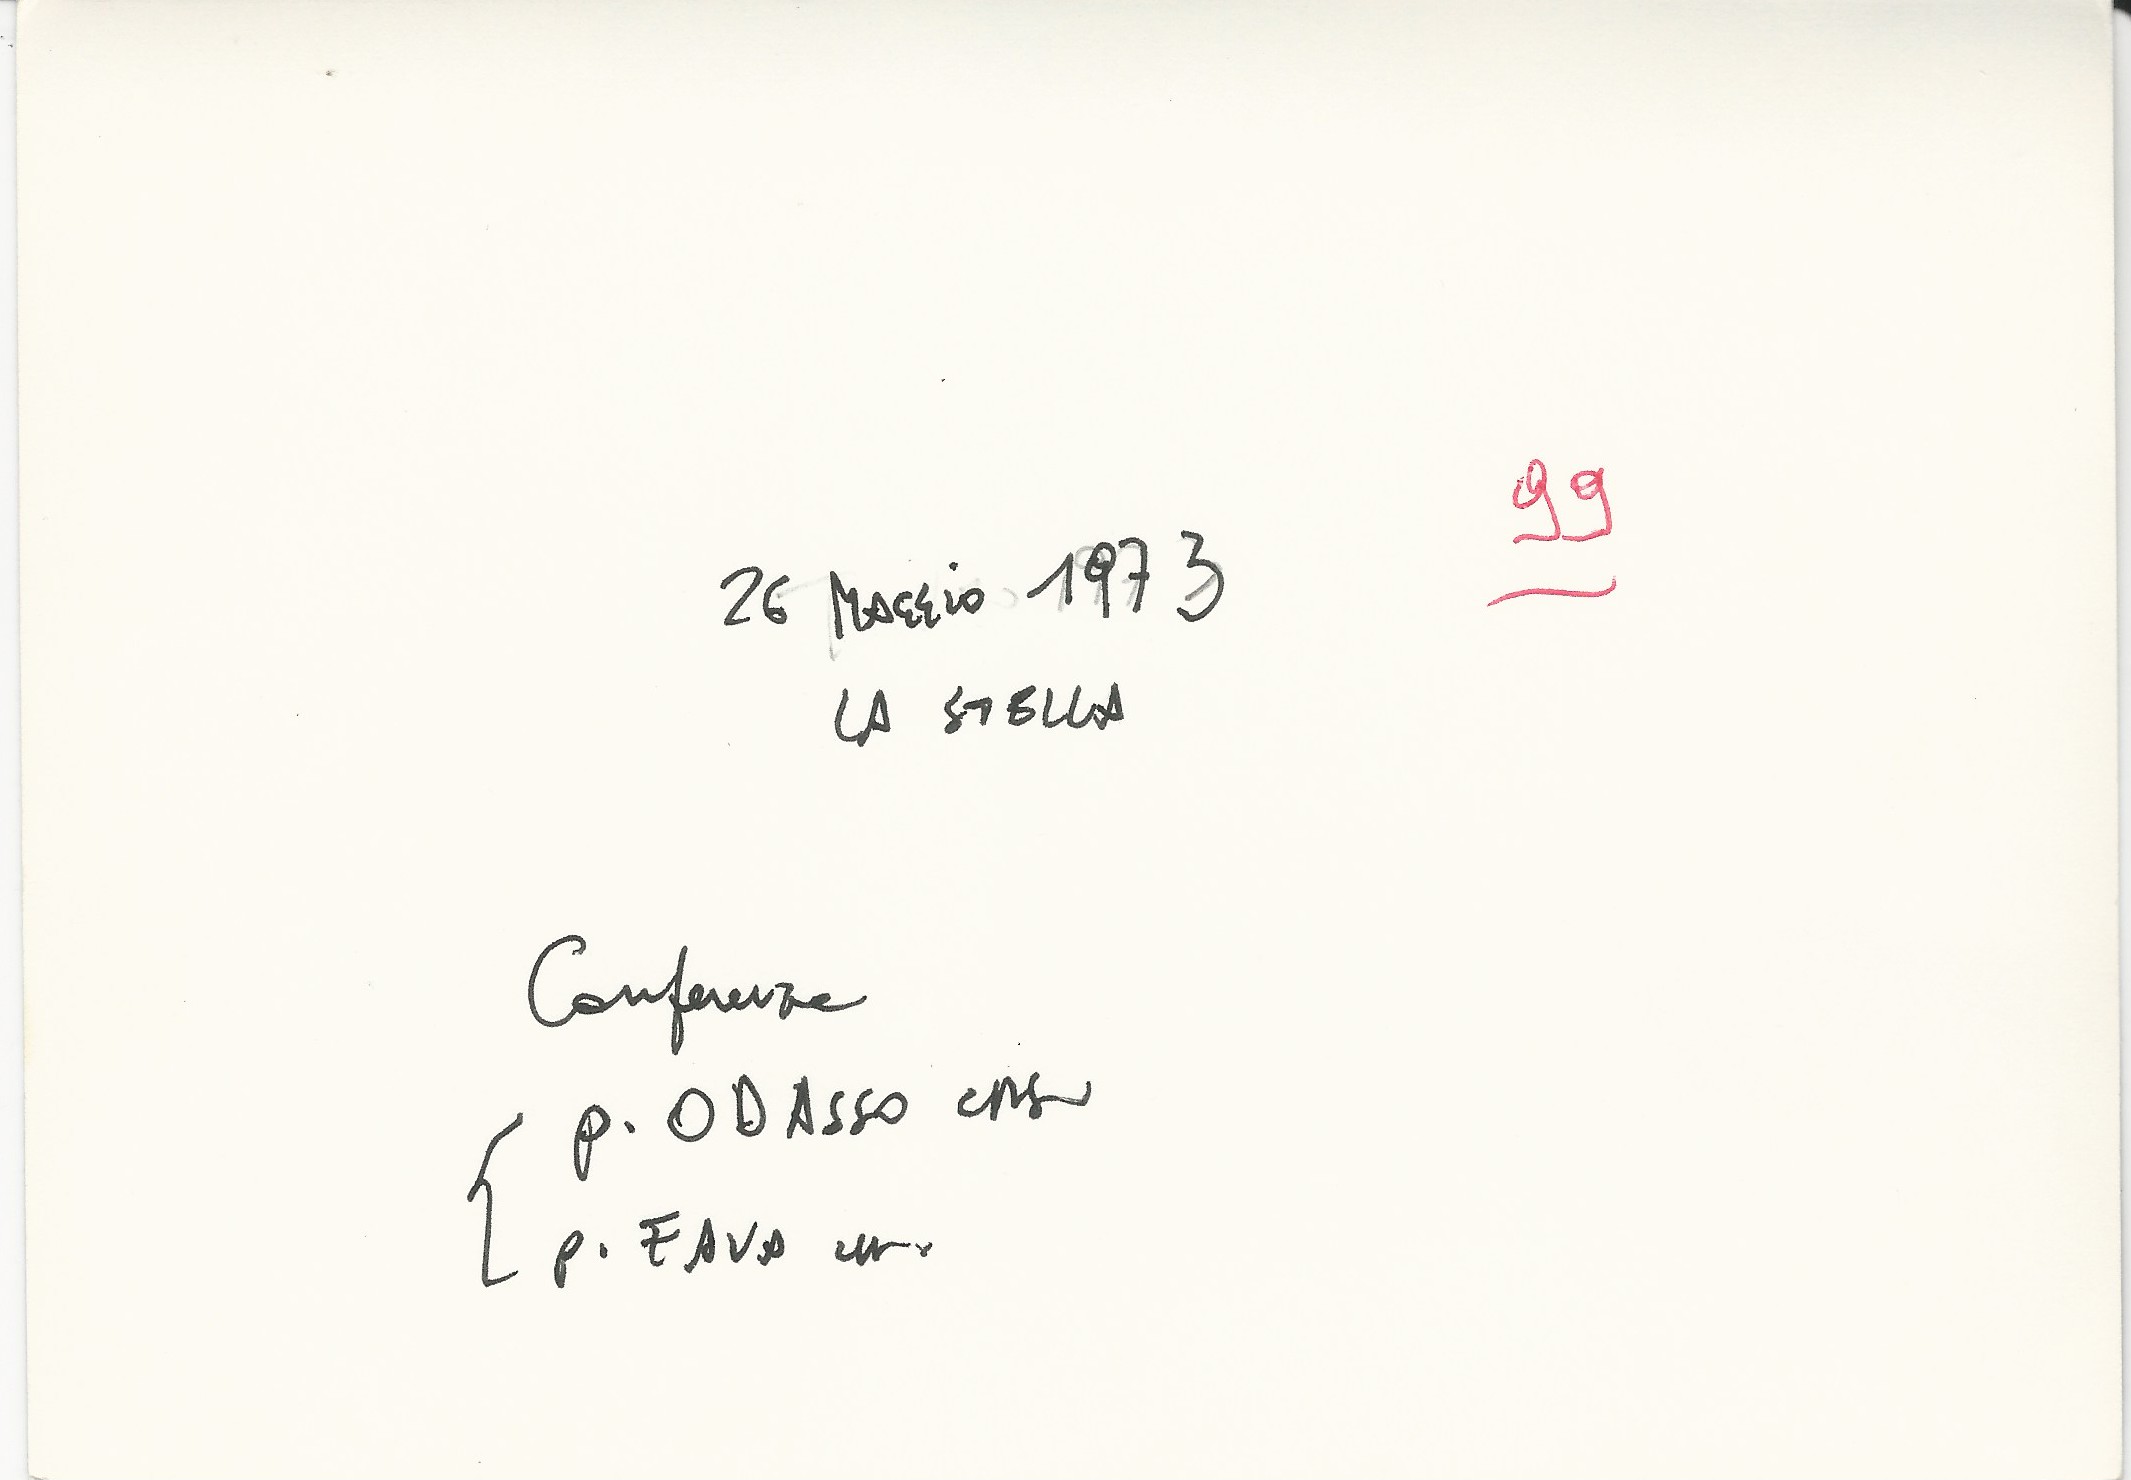 99
26 MAGGIO 1973
LA STELLA
Conferenze
p. ODASSO crs
p. FAVA crs